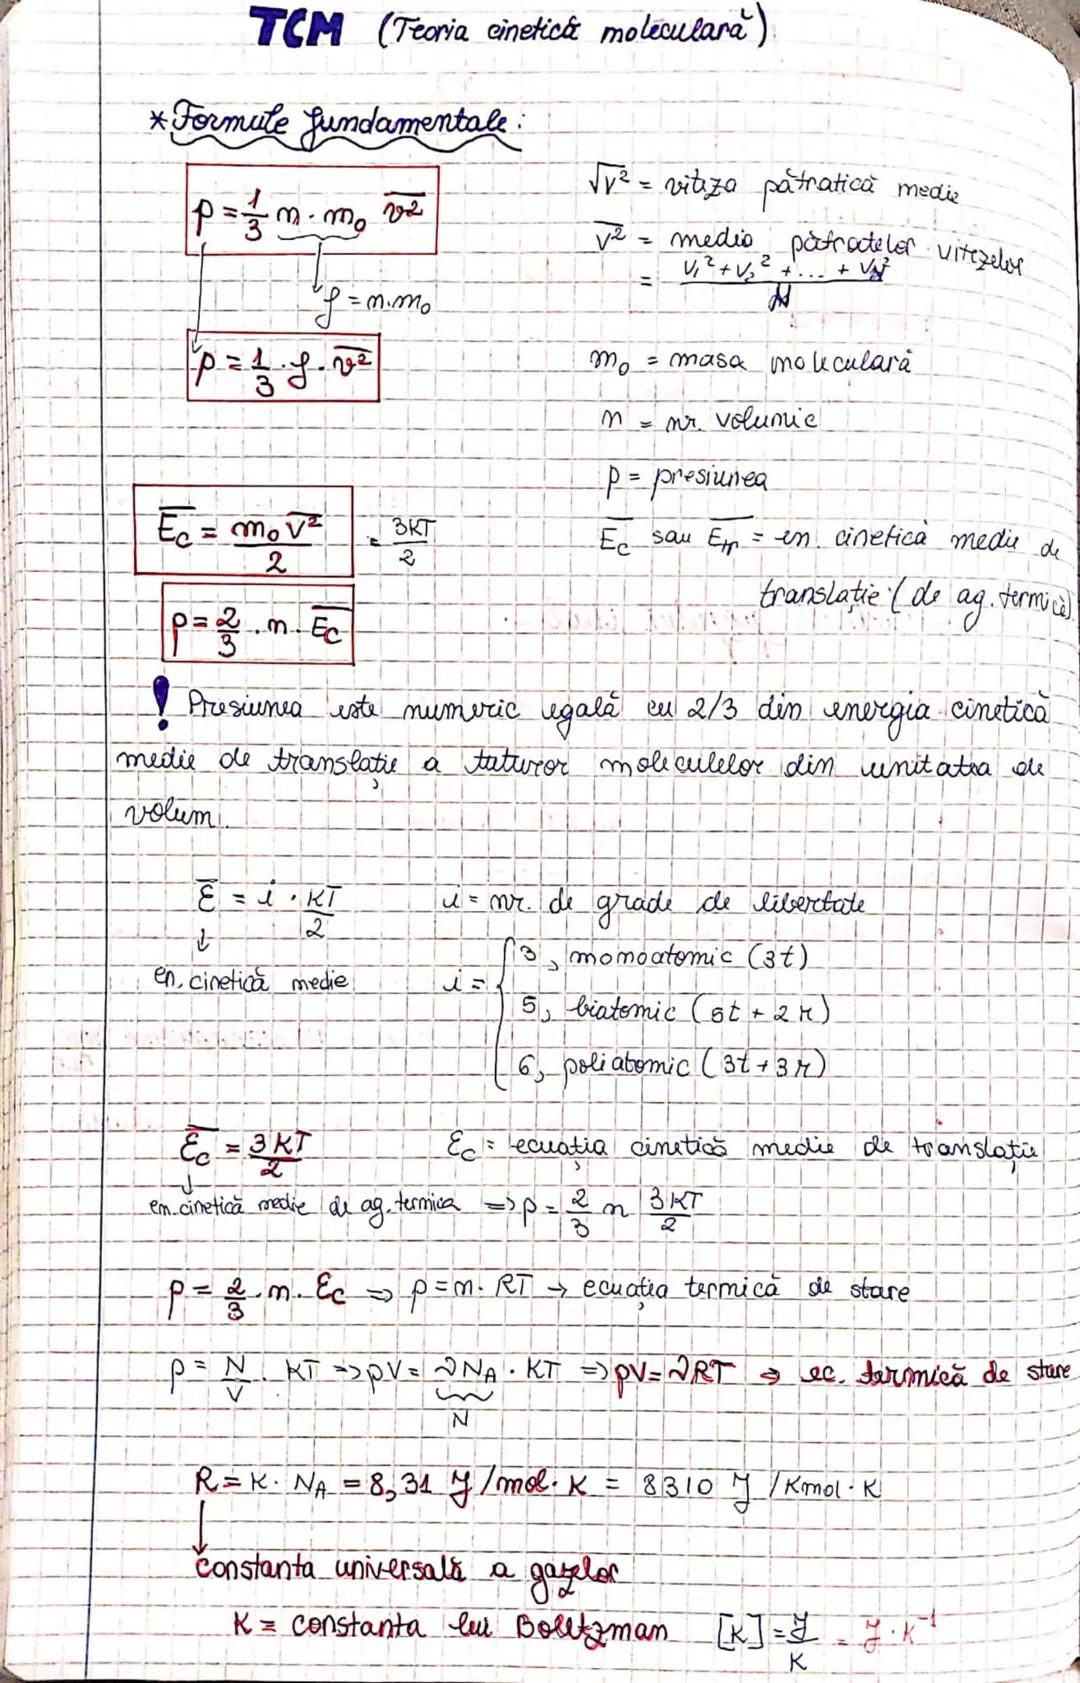 TCM (Teoria cinetică moleculară)
* Formule fundamentale:
p = 1/3 n · m₀ v̅²
√v̅² = viteza pătratică medie
v̅² = media pătratelor vitezelor
= (v₁² + v₂² + ... + v_N²)/N
ρ = n·m₀
p = 1/3 · ρ · v̅²
m₀ = masa moleculară
n = nr. volumic
p = presiunea
E̅c = m₀v̅²/2 = 3KT/2
E̅c sau E̅tr = en. cinetică medie de
translație (de ag. termică)
p = 2/3 · n · E̅c
! Presiunea este numeric egală cu 2/3 din energia cinetică
medie de translație a tuturor moleculelor din unitatea de
volum.
ε̅ = i · KT/2
i = nr. de grade de libertate
↓
en. cinetică medie
i = { 3, monoatomic (3t)
5, biatomic (5t + 2r)
6, poliatomic (3t + 3r)
ε̅c = 3KT/2
εc = ecuația cinetică medie de translație
↓
en. cinetică medie de ag. termica => p = 2/3 n 3KT/2
p = 2/3 · n · εc => p = n · RT → ecuația termică de stare
p = N/V · KT => pV = νN_A · KT => pV = νRT → ec. termică de stare
N
R = K · N_A = 8,31 J/mol·K = 8310 J/Kmol·K
↓
constanta universală a gazelor
K = constanta lui Boltzman [K] = J/K = J·K⁻¹